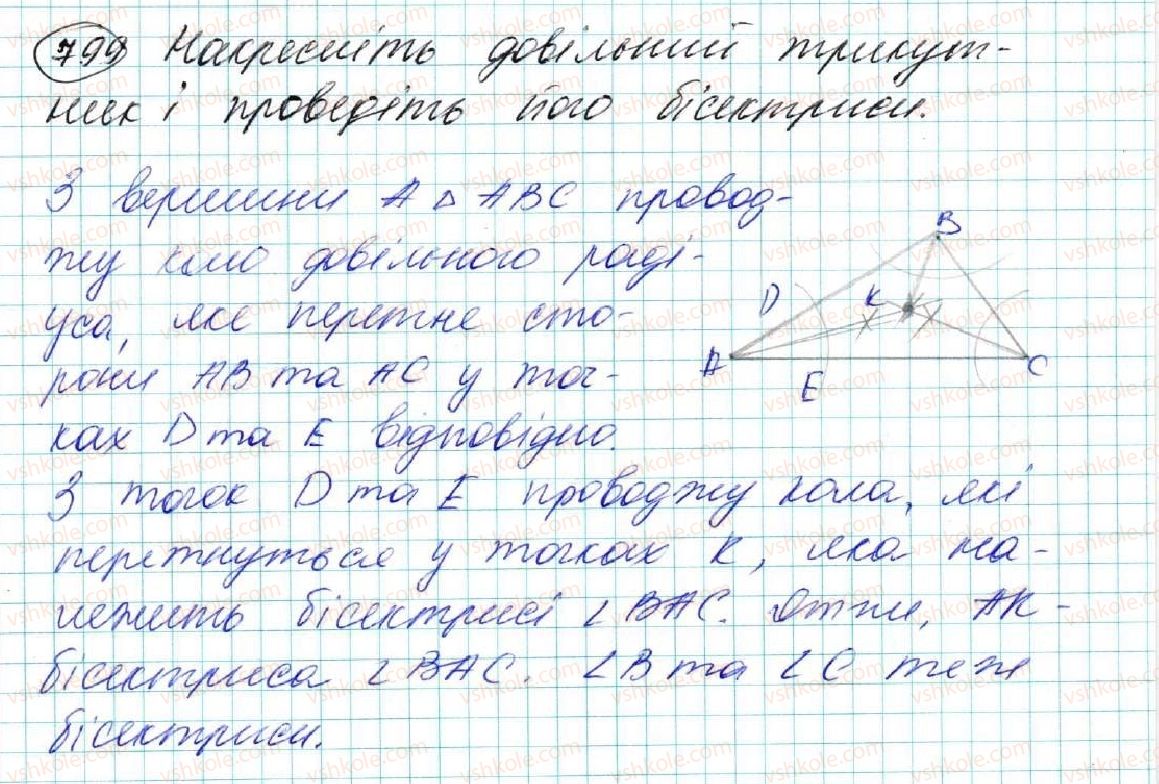 799 Накресліть довільний трикут-
ник і проведіть його бісектриси.
З вершини A △ ABC провод-
жу коло довільного раді-
уса, яке перетне сто-
рони AB та AC у точ-
ках D та E відповідно.
З точок D та E проводжу кола, які
перетнуться у точках K, яка на-
лежить бісектрисі ∠BAC. Отже, AK -
бісектриса ∠BAC. ∠B та ∠C теж
бісектриси.
B
D
K
A
C
E
vshkole.com